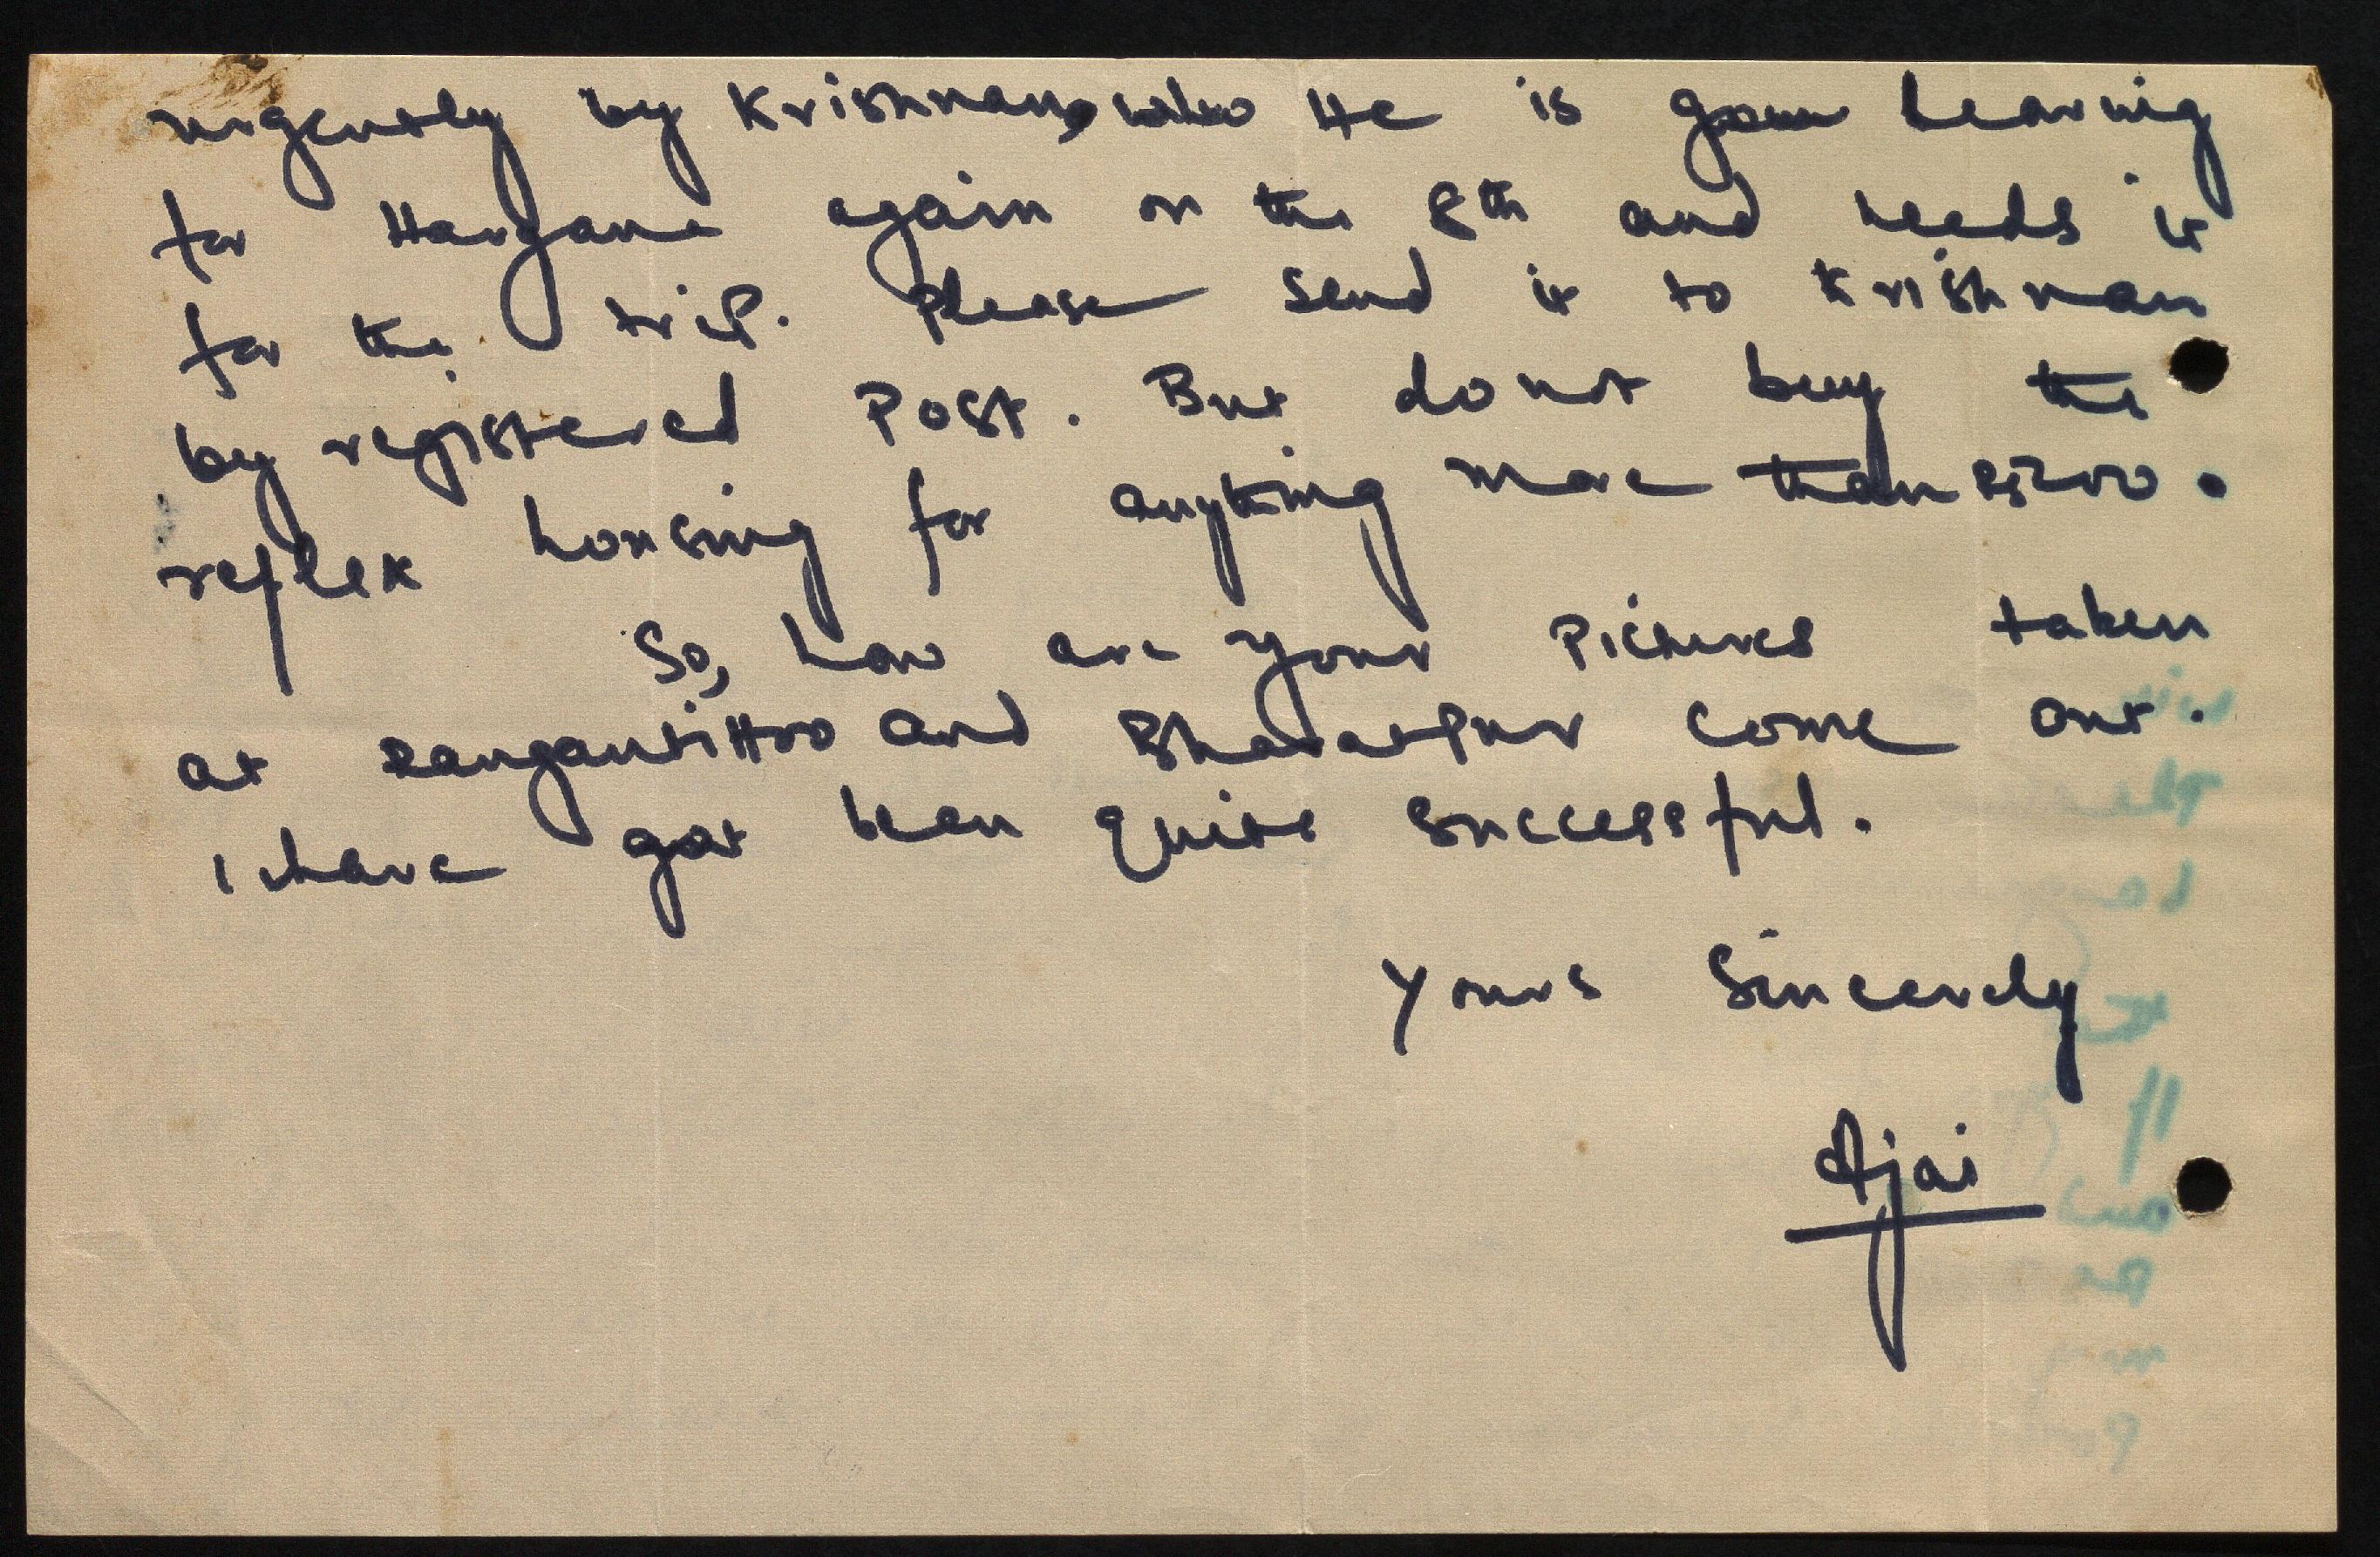 urgently by Krishnan, who He is goin leaving
for Hargane again on the 8th and needs it
for the trip. Please send it to Krishnan
by registered Post. But do not buy the
reflex housing for anything more than Rs 200.
So, how are your Pictures taken
at Ranganthittoo and Bharatpur come out.
I have got been quite successful.
Yours Sincerely
Ajai